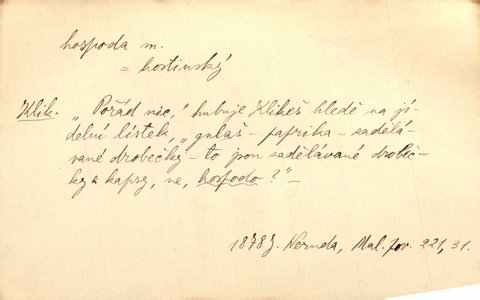 hospoda m.
= hostinský
Klik. „Pořád nic," hubuje Klikeš hledě na jí-
delní lístek, „guláš – paprika – zadělá-
vané drobečky – to jsou zadělávané drobeč-
ky z kapsy, ne, hospodo?" –
1878 J. Neruda, Mal. pov. 221, 31.